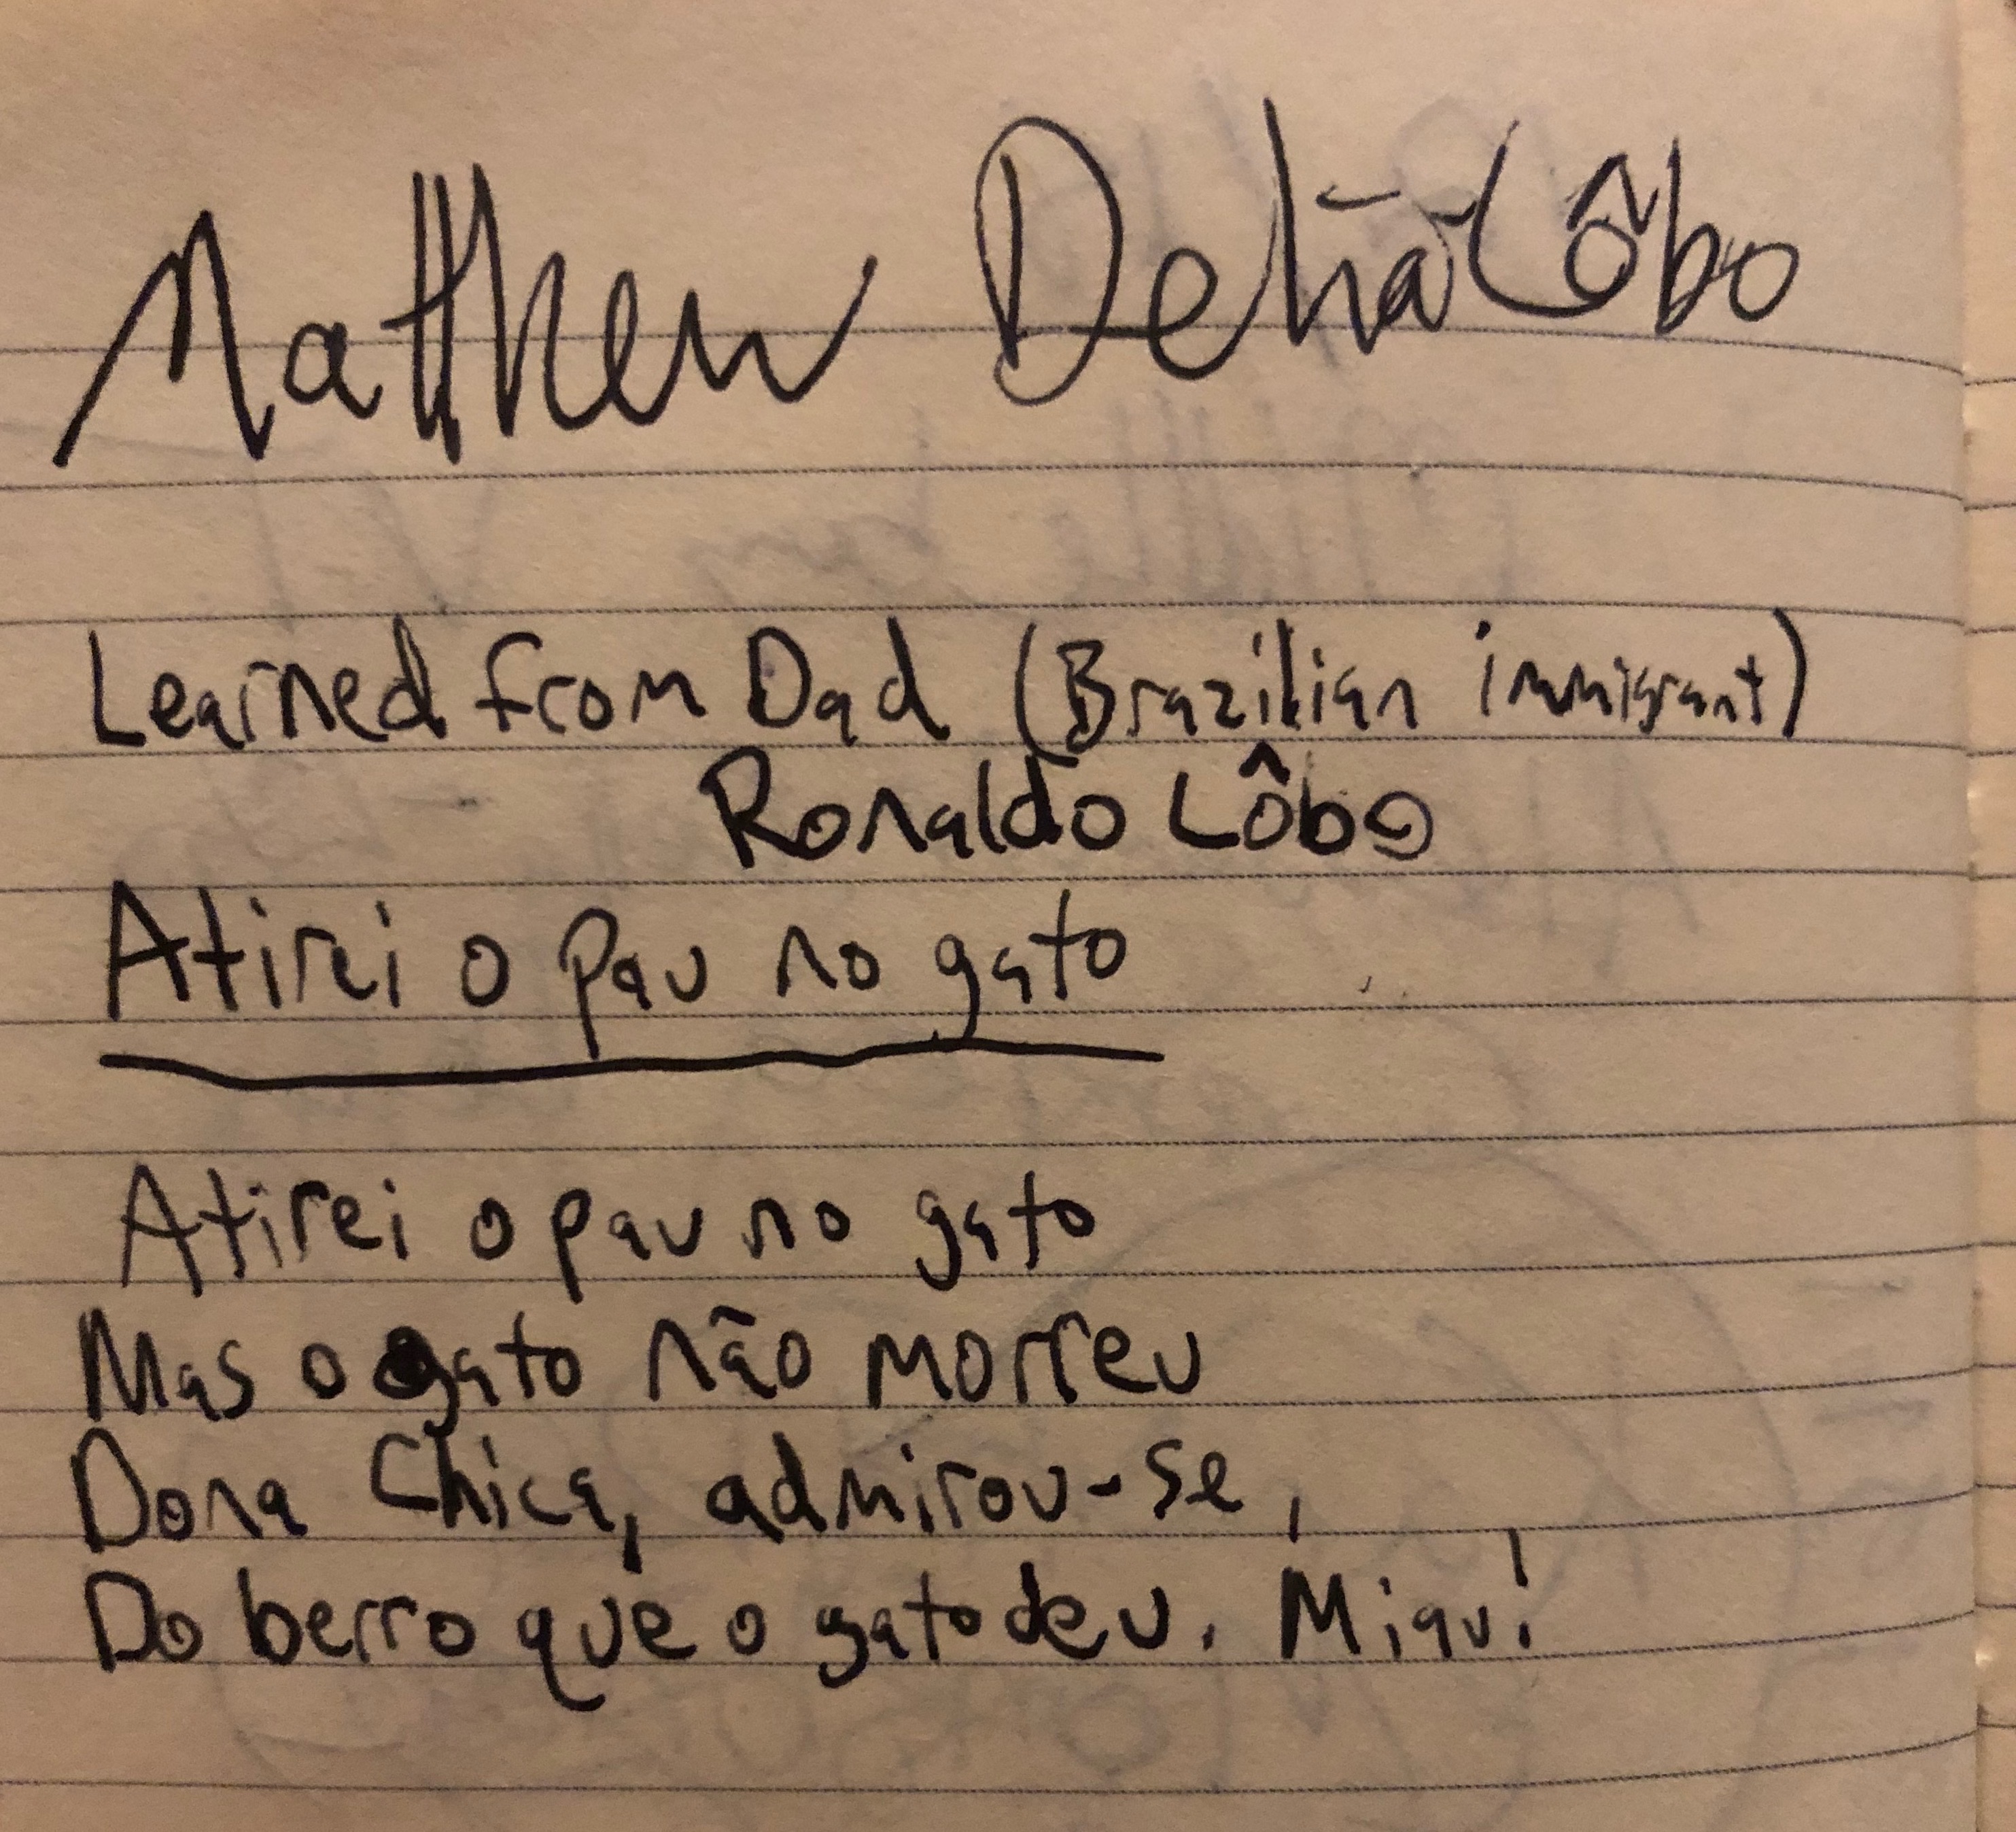 Matthew Lôbo
Learned from Dad (Brazilian immigrant)
Ronaldo Lôbo
Atirei o pau no gato
Atirei o pau no gato
Mas o gato não morreu
Dona Chica, admirou-se,
Do berro que o gato deu. Miau!